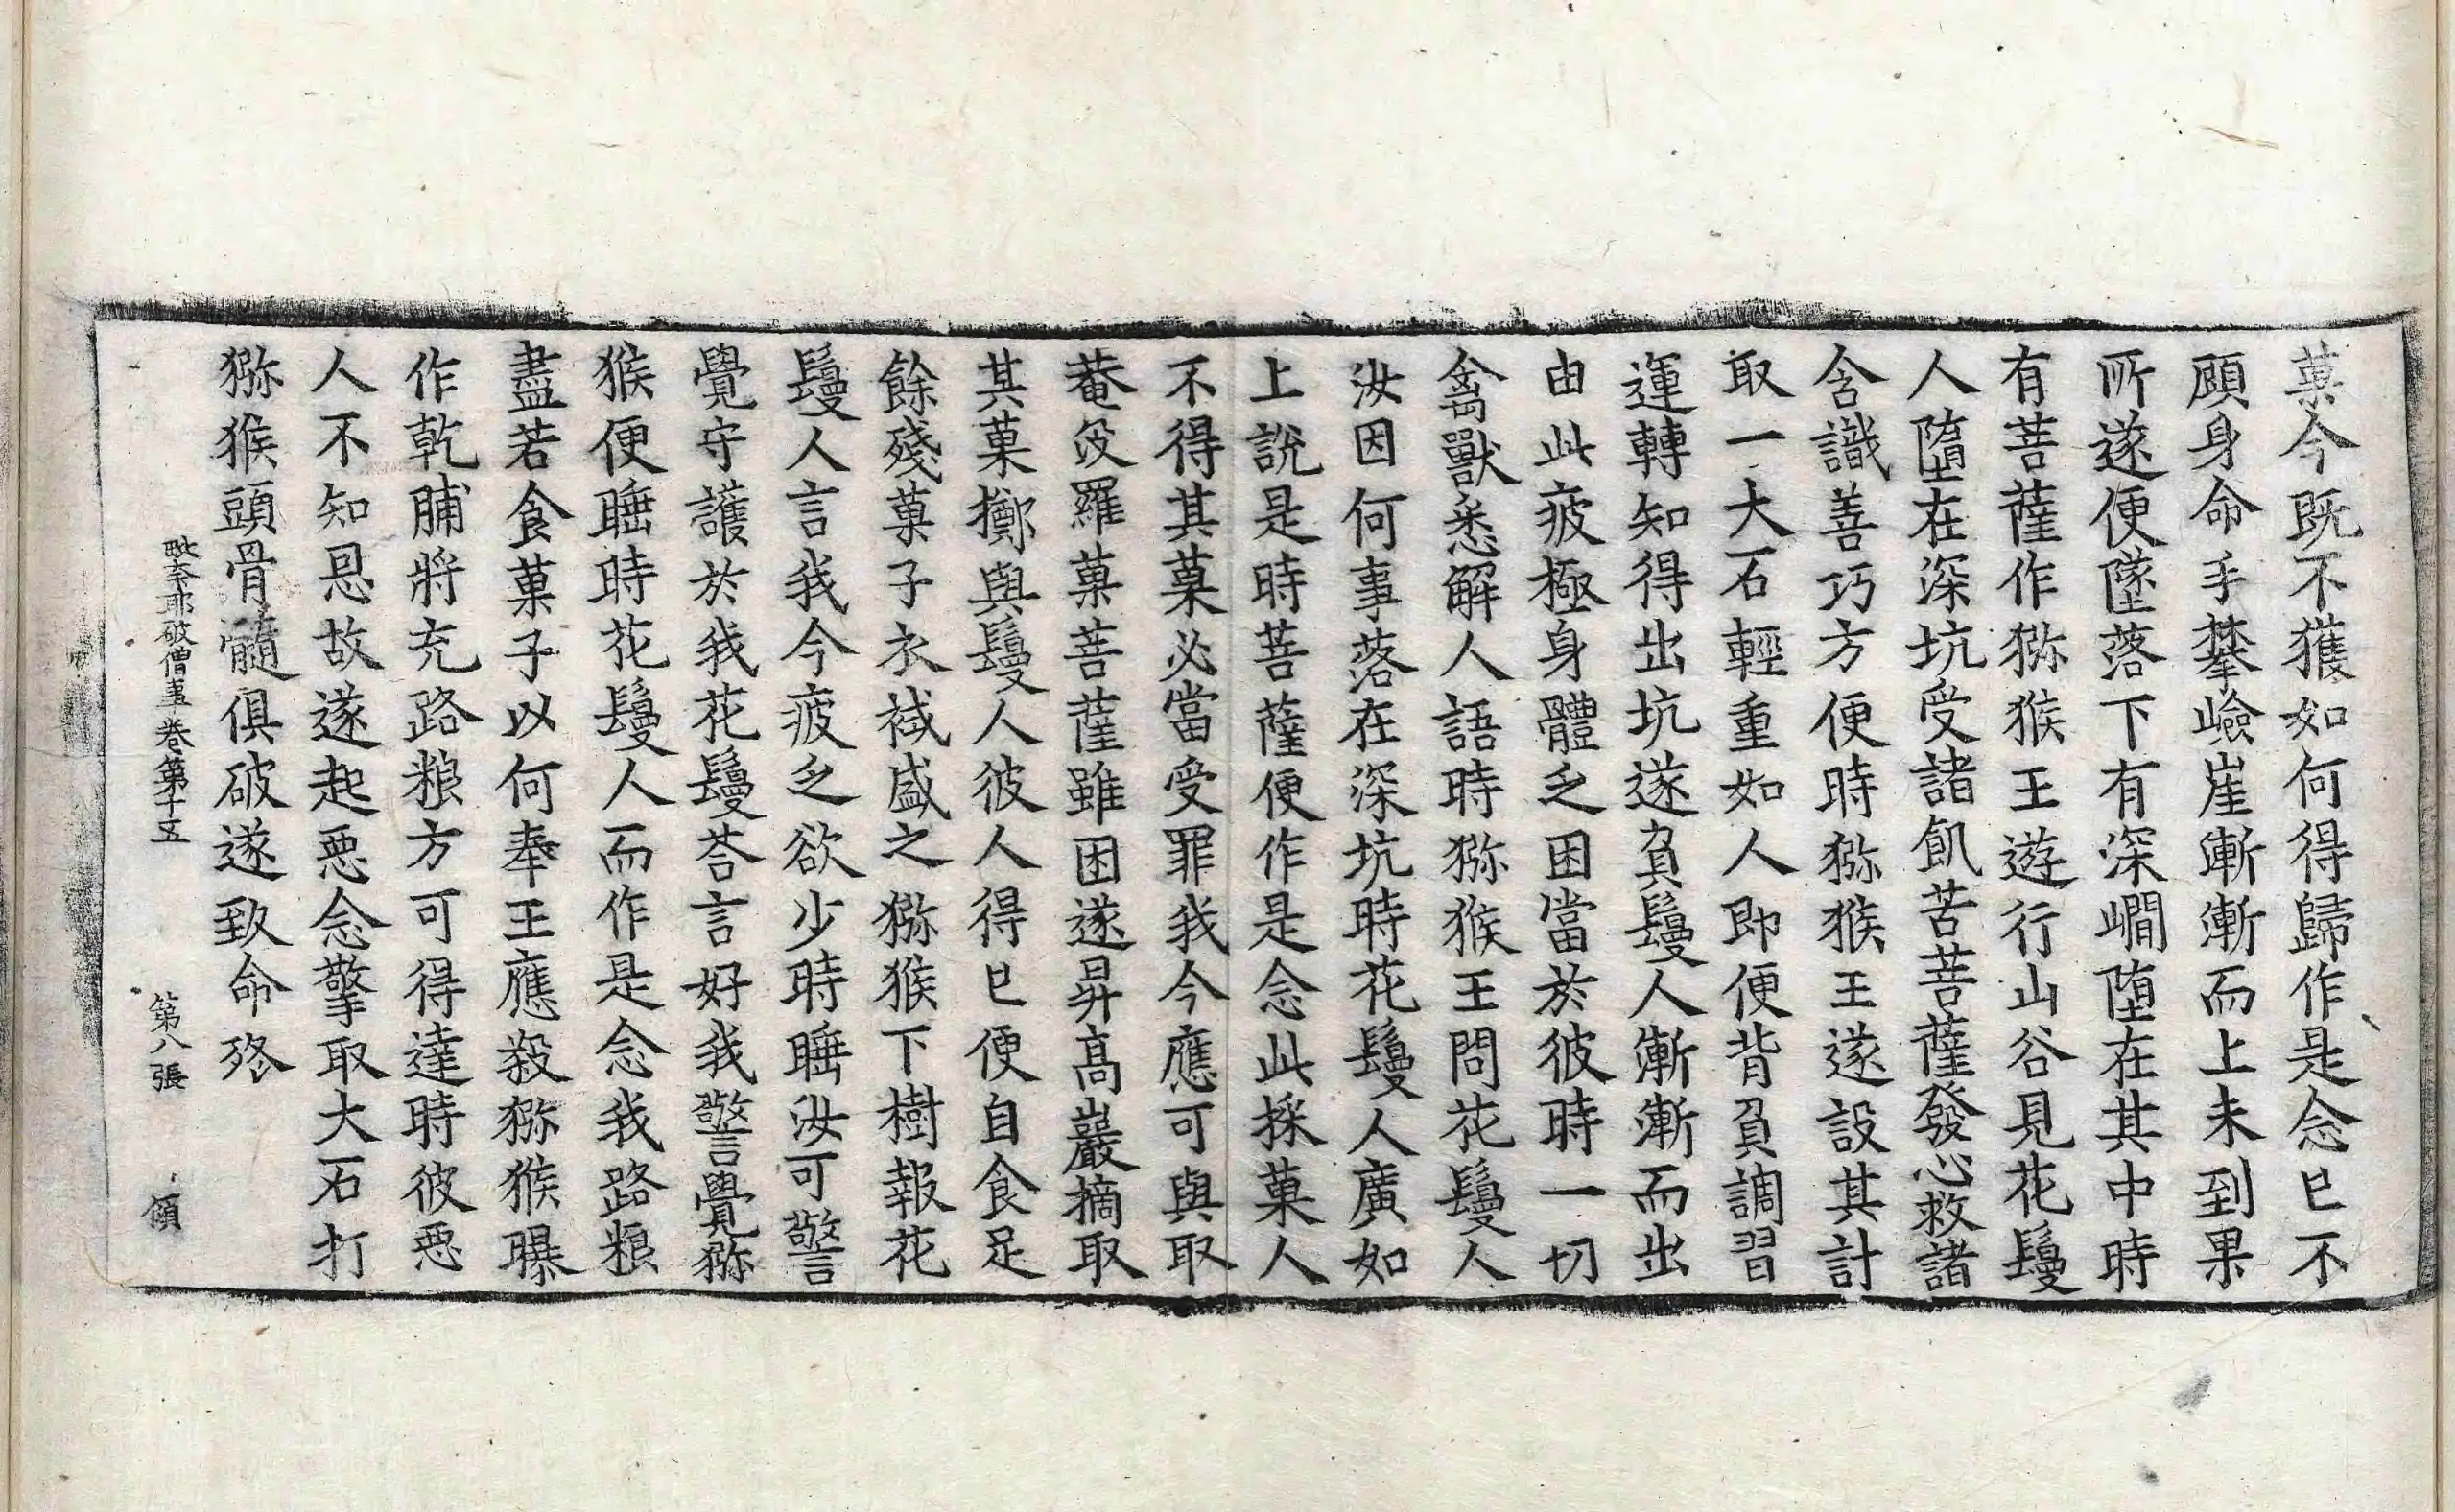 菓今既不獲如何得歸作是念已不
顧身命手攀嶮崖漸漸而上未到果
所遂便墜落下有深㵎墮在其中時
有菩薩作猕猴王遊行山谷見花鬘
人墮在深坑受諸飢苦菩薩發心救諸
含識善巧方便時猕猴王遂設其計
取一大石輕重如人即便背負調習
運轉知得出坑遂負鬘人漸漸而出
由此疲極身體乏困當於彼時一切
禽獸悉解人語時猕猴王問花鬘人
汝因何事落在深坑時花鬘人廣如
上說是時菩薩便作是念此採菓人
不得其菓必當受罪我今應可與取
菴笅羅菓菩薩雖困遂昇高巖摘取
其菓擲與鬘人彼人得已便自食足
餘殘菓子衣裓盛之猕猴下樹報花
鬘人言我今疲乏欲少時睡汝可警
覺守護於我花鬘荅言好我警覺猕
猴便睡時花鬘人而作是念我路粮
盡若食菓子以何奉王應殺猕猴曝
作乾脯將充路粮方可得達時彼惡
人不知恩故遂起惡念擎取大石打
猕猴頭骨髓俱破遂致命終
毗奈耶破僧事卷第十五 第八張 傾